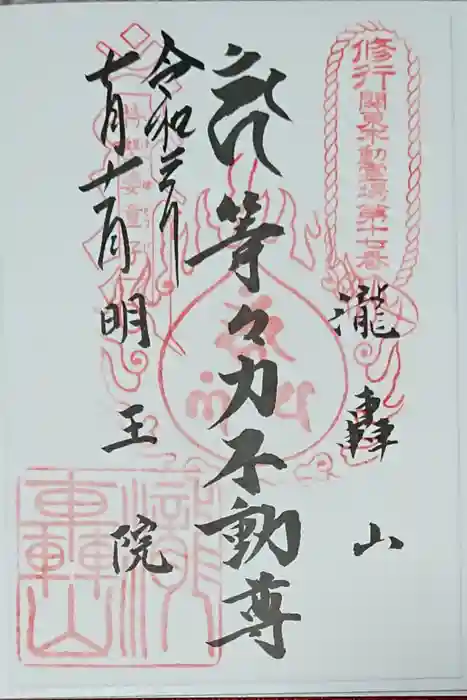 修行 関東不動霊場第十七番
瀧轟山
等々力不動尊
令和三年
七月十一日
童子
明王院
瀧轟山